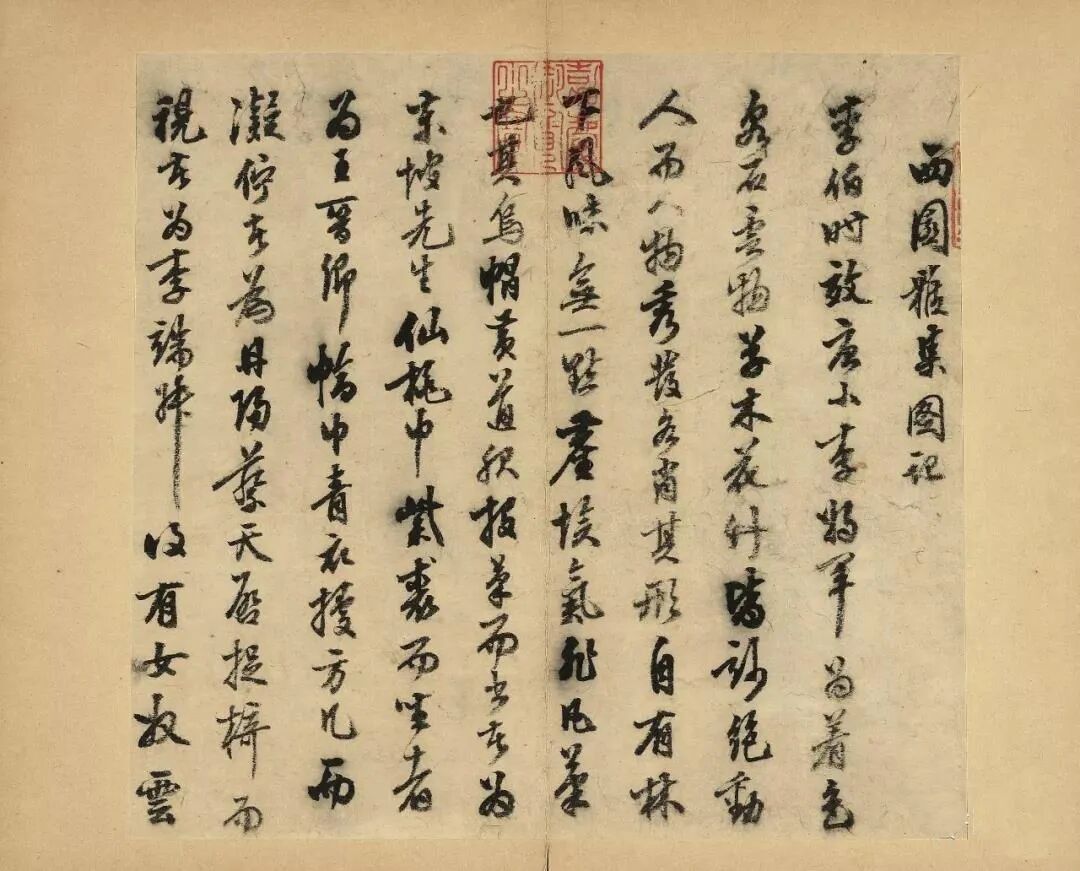 西園雅集图記
李伯時效唐小李將軍為着色
泉石雲物草木花竹皆妙絶動
人而人物秀發各肖其形自有林
下風味無一點塵埃氣非凡筆
也其烏帽黄道服捉筆而書者為
東坡先生仙桃巾紫裘而坐者
為王晋卿幅巾青衣據方几而
凝佇者為丹陽蔡天啟捉椅而
視者為李端叔後有女奴雲